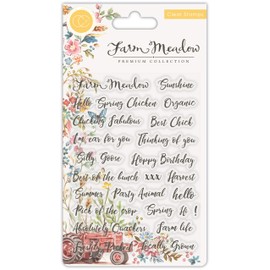 Clear Stamps
C
Farm Meadow
PREMIUM COLLECTION
Farm Meadow Sunshine
Hello Spring Chicken Organic
Clucking Fabulous Best Chick
I'm ear for you Thinking of you
Silly Goose Happy Birthday
Best of the bunch xxx Harvest
Summer Party Animal hello
Pick of the crop Spring
Absolutely Quackers Farm life
Freshly Picked Locally Grown